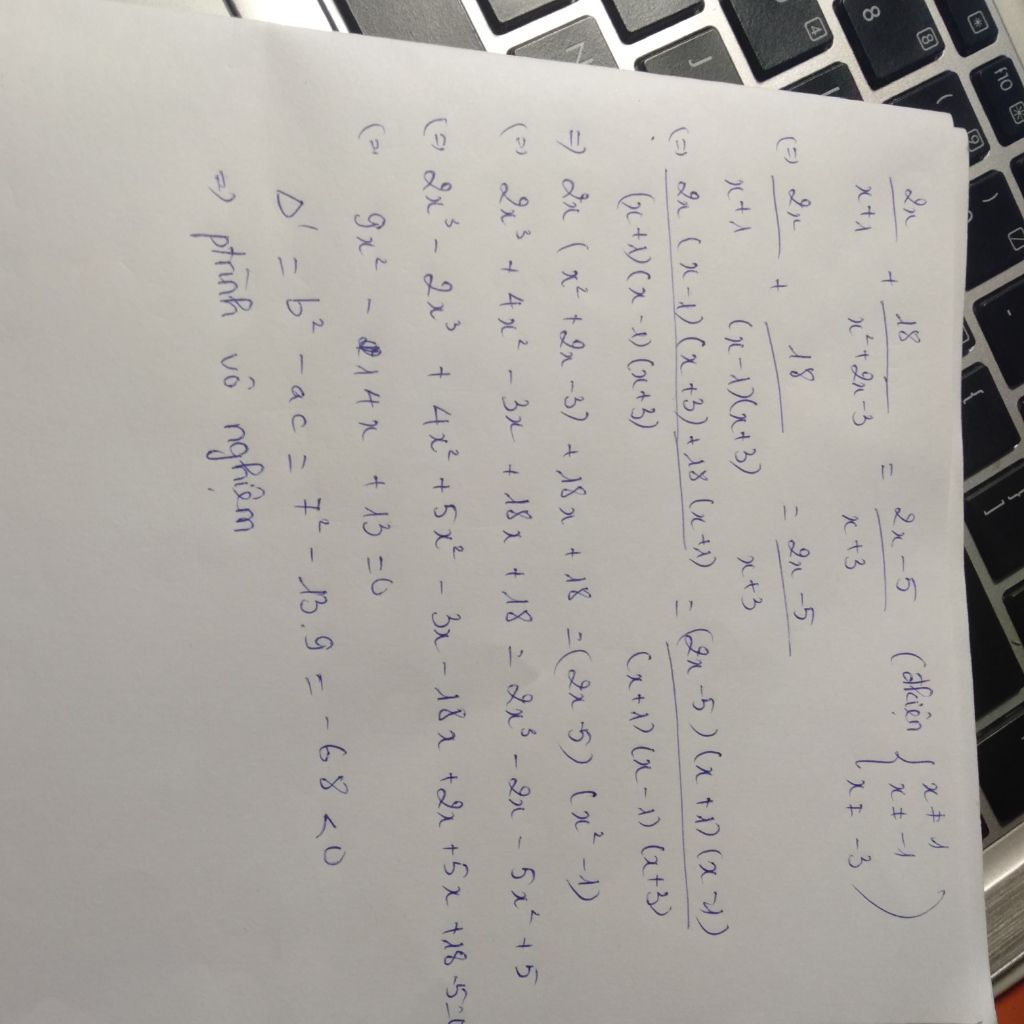 2x/(x+1) + 18/(x²+2x-3) = (2x-5)/(x+3) (đkiện { x ≠ 1 x ≠ -1 x ≠ -3 )
(=) 2x/(x+1) + 18/((x-1)(x+3)) = (2x-5)/(x+3)
(=) (2x(x-1)(x+3)+18(x+1))/((x+1)(x-1)(x+3)) = ((2x-5)(x+1)(x-1))/((x+1)(x-1)(x+3))
=) 2x(x²+2x-3)+18x+18=(2x-5)(x²-1)
(=) 2x³+4x²-3x+18x+18=2x³-2x-5x²+5
(=) 2x³-2x³+4x²+5x²-3x-18x+2x+5x+18-5=0
(=) 9x²-14x+13=0
Δ' = b²-ac = 7²-13.9 = -68 < 0
=) ptrình vô nghiệm